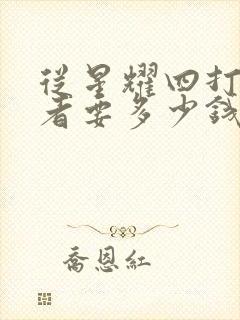 從星耀四打
者要多少錢
喬恩紅